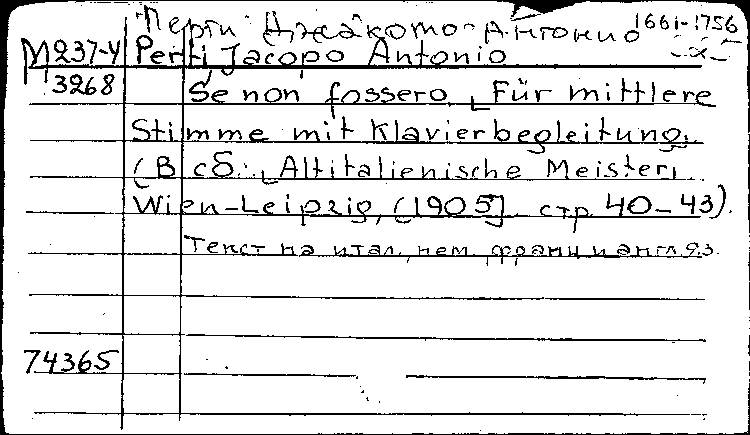 Перти Джакомо-Антонио 1661-1756
М237-4 Perti Jacopo Antonio
3268 Se non fossero. Für mittlere
Stimme mit Klavierbegleitung.
(В сб: Altitalienische Meister,
Wien-Leipzig, (1905], стр. 40-43).
Текст на итал, нем, франц и англ яз.
74365